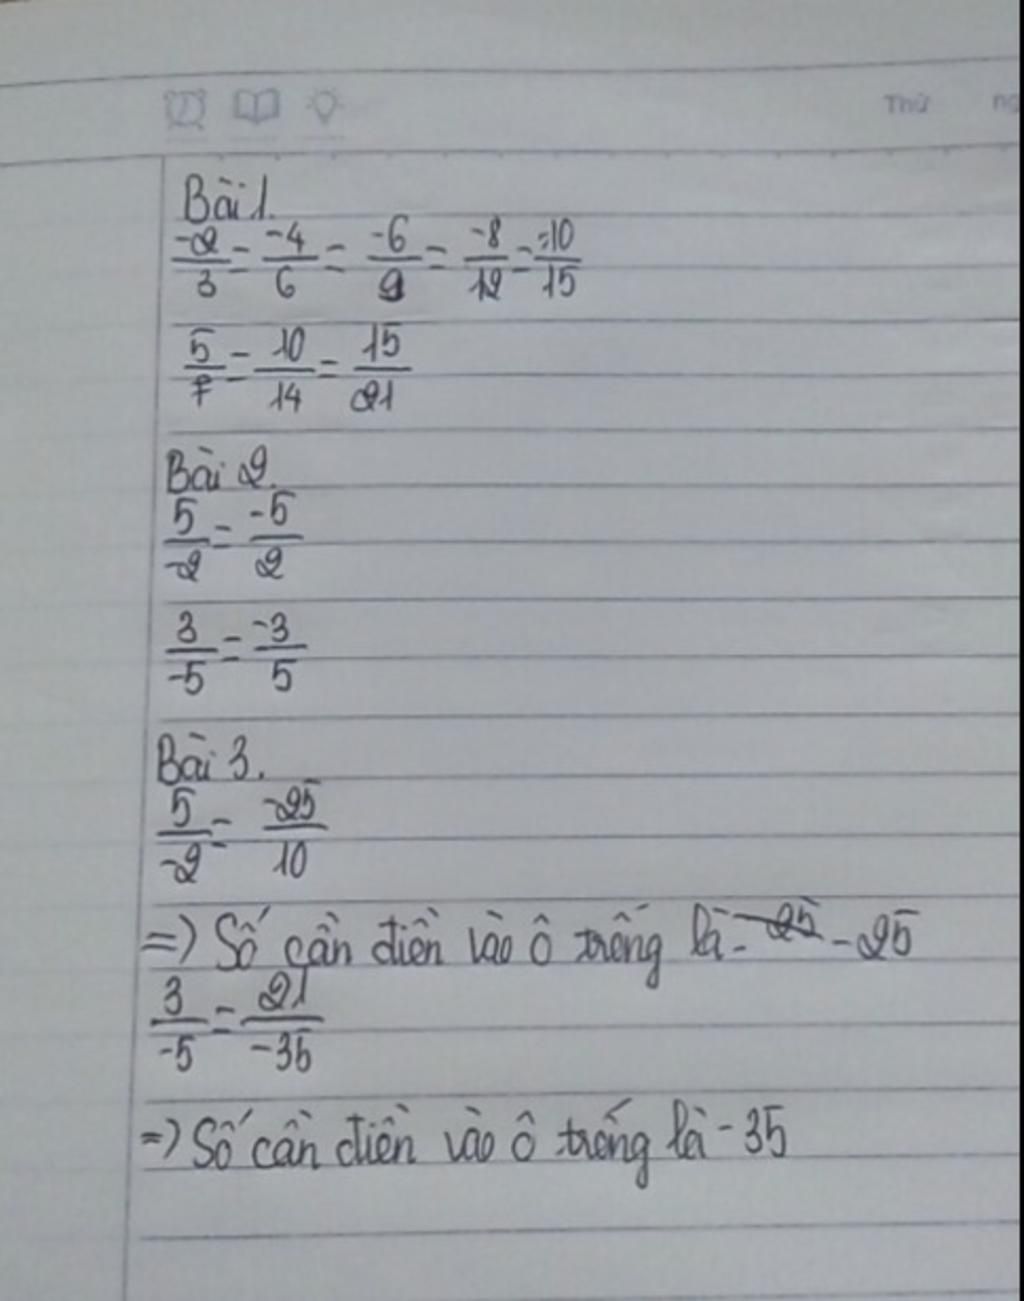 Thứ ng
Bài 1.
-2/3 = -4/6 = -6/9 = -8/12 = -10/15
5/7 = 10/14 = 15/21
Bài 2.
5/-2 = -5/2
3/-5 = -3/5
Bài 3.
5/-2 = -25/10
=> Số cần điền vào ô trống là -25
3/-5 = 21/-35
=> Số cần điền vào ô trống là -35